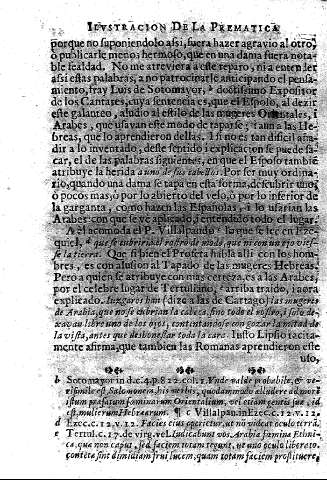 ILVSTRACION DE LA PREMATICA
porque no suponiendolo assi, fuera hazer agravio al otro,
ò publicarle menos hermoso, que en una dama fuera nota-
ble fealdad. No me atreviera a este reparo, ni a entender
assi estas palabras, a no patrocinarle anticipando el pensa-
miento, fray Luis de Sotomayor, doctissimo Expositor
de los Cantares, cuya sentencia es, que el Esposo, al dezir
este galanteo, aludio al estilo de las mugeres Orientales, i
Arabes, que usavan este modo de taparse; i aun a las He-
breas, que lo aprendieron dellas. I si no es tan dificil aña-
dir a lo inventado, deste sentido i explicacion se puede sa-
car, el de las palabras siguientes, en que el Esposo tambien
atribuye la herida a uno de sus cabellos. Por ser muy ordina-
rio, quando una dama se tapa en esta forma, descubrir uno,
ò pocos mas, ò por lo abierto del velo, ò por lo inferior de
la garganta, como hazen las Españolas, i lo usarian las
Arabes: con que se ve aplicado, i entendido todo el lugar.
A el acomoda el P. Villalpando c la que se lee en Eze-
quiel, d que se cubriria el rostro de modo, que ni con un ojo vies-
se la tierra. Que si bien el Profeta habla alli con los hom-
bres, es con alusion al Tapado de las mugeres Hebreas.
Pero a quien se atribuye con mas certeza, es a las Arabes,
por el celebre lugar de Tertuliano, arriba traido, i aora
explicado. Iuzgaros han (dize a las de Cartago) las mugeres
de Arabia, que no se cubrian la cabeça, sino todo el rostro, i solo de-
xavan libre uno de los ojos, contentandose con gozar la mitad de
la vista, antes que deshonestar toda la cara. Iusto Lipsio tacita-
mente afirma, que tambien las Romanas aprendieron este
uso,
b Sotomayor in d.c.4.p.812.col.1. Unde valde probabile, & ve-
risimile est, Salomonem, his verbis, quodammodo alludere ad mori
istum præsatum fœminarum Orientalium, vel etiam gentis suæ, id
est, mulierum Hebræarum. ¶ c Villalpan. in Ezec.c.12.v.12.
d Ezec.c.12.v.12. Facies eius operietur, ut nō videat oculo terrā.
e Tertul.c.17. de virg.vel. Iudicabunt vos Arabiæ fœminæ Ethni-
cæ, quæ non caput, sed faciem totam tegunt, ut uno oculo liberato,
contētæ sint dimidiam frui lucem, quàm totam faciem prostituere,